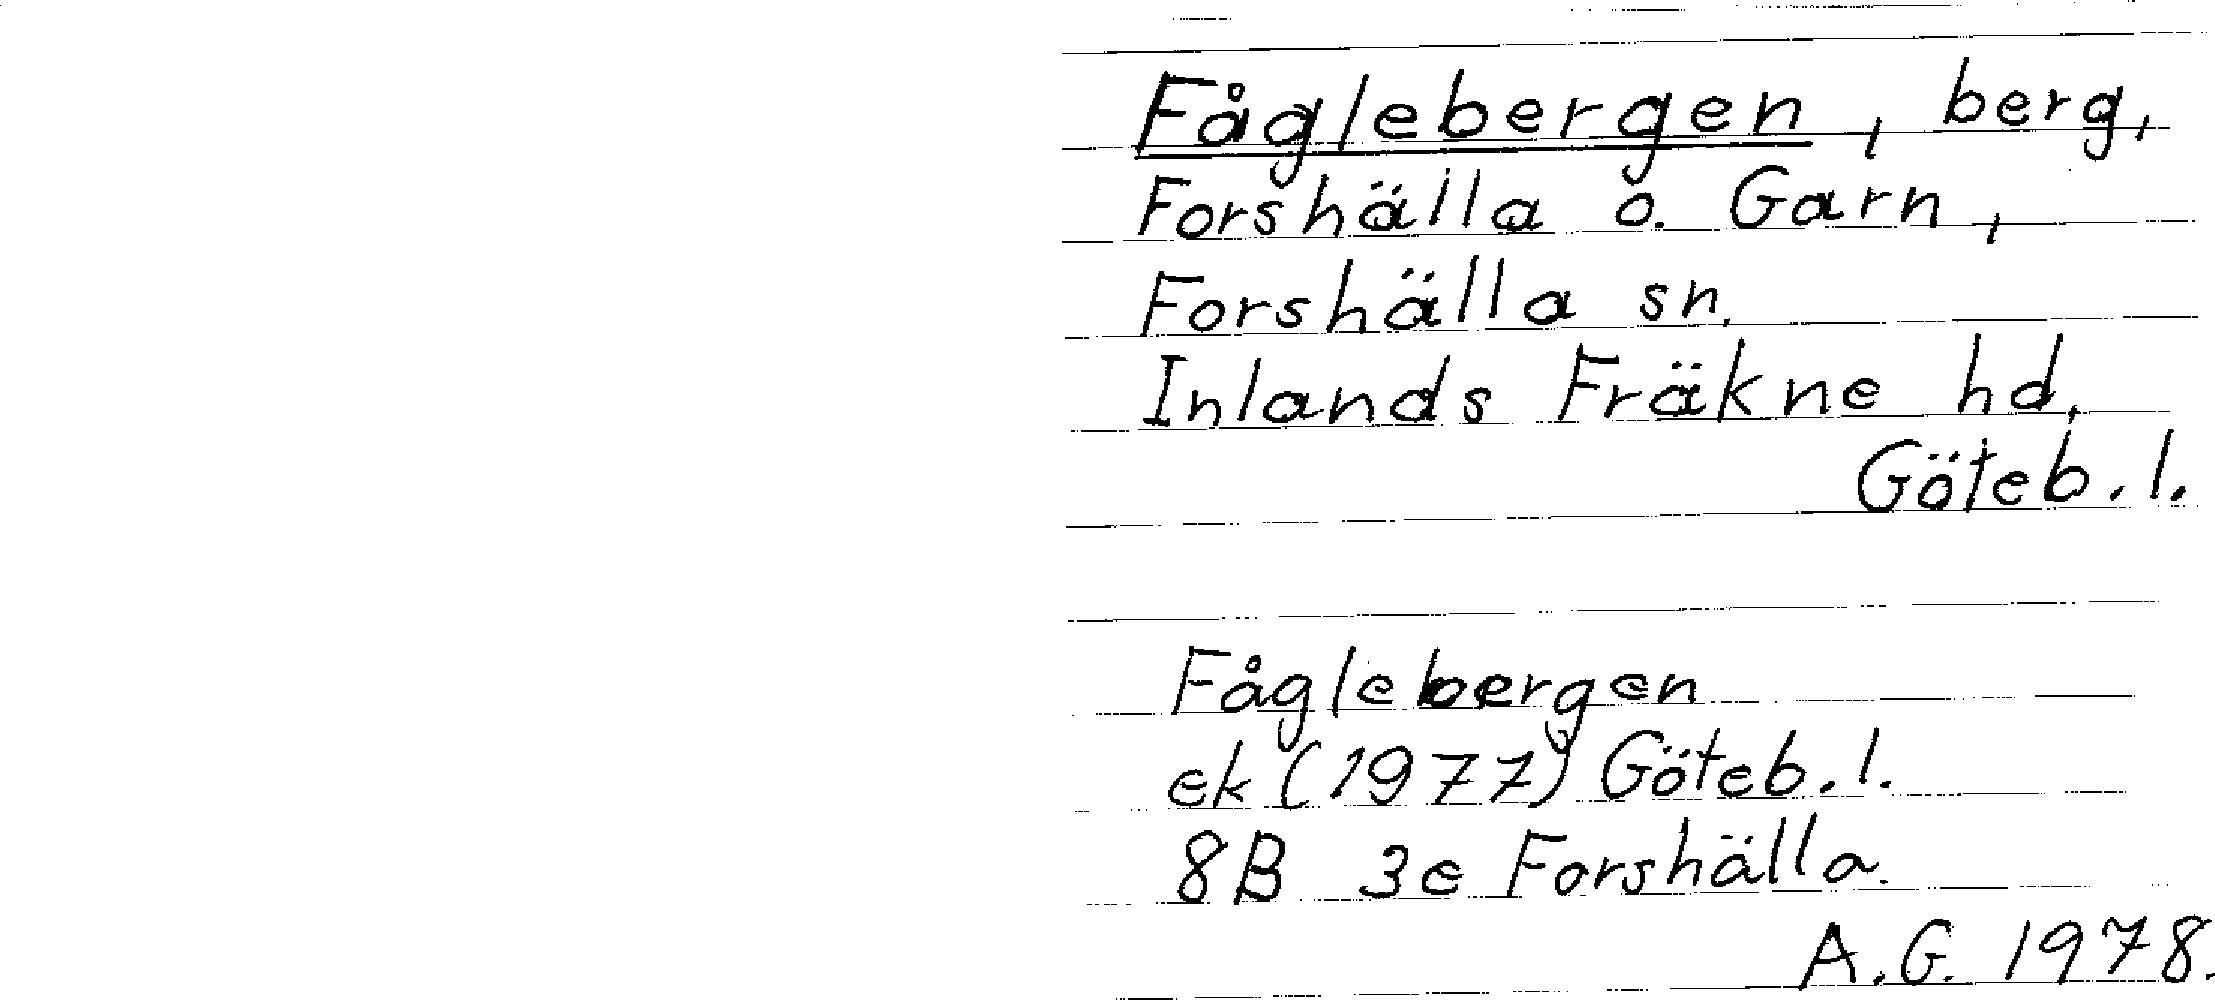 Fåglebergen, berg,
Forshälla o. Garn,
Forshälla sn.
Inlands Fräkne hd.
Göteb. l.
Fåglebergen
ek (1977) Göteb. l.
8B 3e Forshälla.
A.G. 1978.